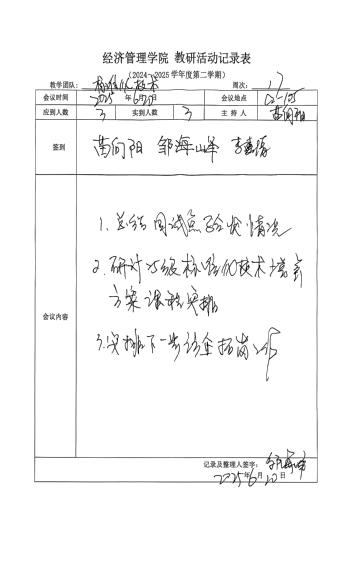 经济管理学院 教研活动记录表
（2024～2025学年度第二学期）
教学团队：标准化技术 周次：17
会议时间 2025年6月20日 会议地点
应到人数 3 实到人数 3 主 持 人 苗向阳
签到 苗向阳 邹海峰
会议内容
1. 总结 验收情况
2. 研讨25级标准化技术培养
方案课程安排
3. 安排下一步
记录及整理人签字：邹海峰
2025年6月20日